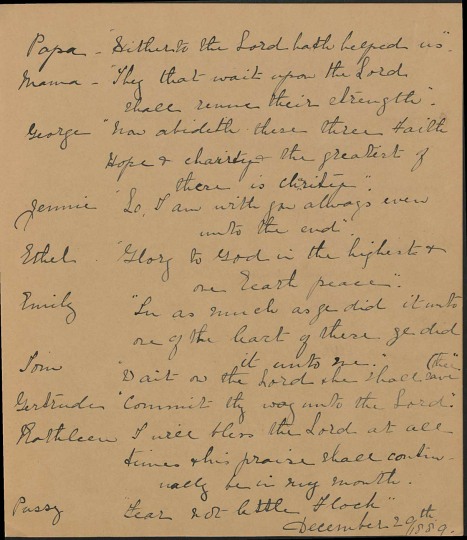 Papa - "Hitherto the Lord hath helped us".
Mama - "They that wait upon the Lord
shall renew their strength".
George "Now abideth these three Faith
Hope & charity & the greatest of
these is charity".
Jennie "Lo, I am with you always even
unto the end".
Ethel "Glory to God in the highest &
on Earth peace".
Emily "In as much as ye did it unto
one of the least of these ye did
it unto me."
Tom "Wait on the Lord & he shall save thee"
Gertrude "Commit thy way unto the Lord".
Kathleen I will bless the Lord at all
times & his praise shall contin-
ually be in my mouth.
Pussy "Fear not little Flock"
December 29th 1889.